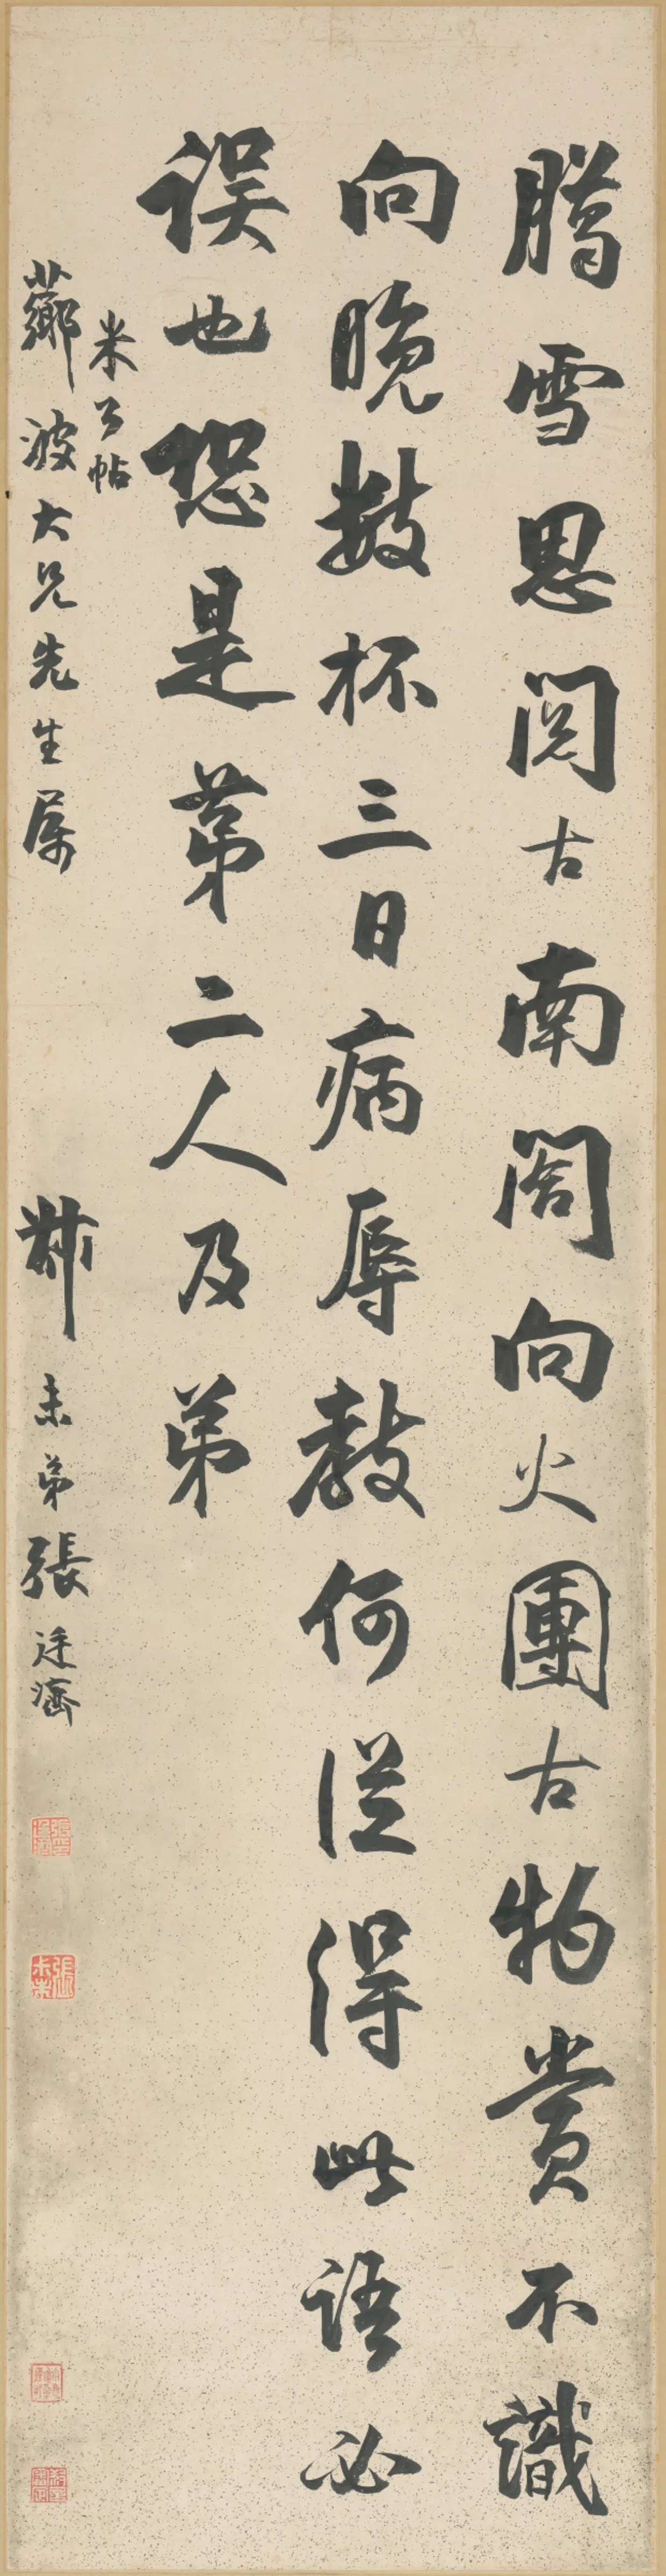 臈雪思閱古南閣向火團古物賞不識
向晚數杯三日病辱教何從得此語必
誤也恐是第二人及弟
米公帖
薌波大兄先生屬
未弟張廷濟